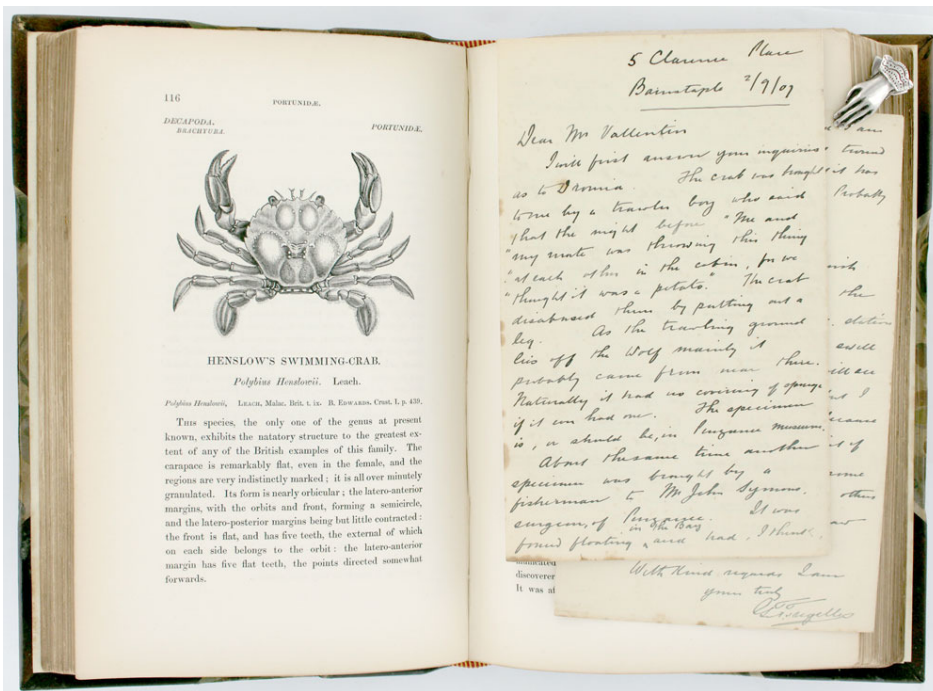 116
PORTUNIDÆ.
DECAPODA.
BRACHYURA.
PORTUNIDÆ.
HENSLOW'S SWIMMING-CRAB.
Polybius Henslowii. Leach.
Polybius Henslowii, LEACH, Malac. Brit. t. ix. B. EDWARDS, Crust. I. p. 439.
THIS species, the only one of the genus at present
known, exhibits the natatory structure to the greatest ex-
tent of any of the British examples of this family. The
carapace is remarkably flat, even in the female, and the
regions are very indistinctly marked; it is all over minutely
granulated. Its form is nearly orbicular; the latero-anterior
margins, with the orbits and front, forming a semicircle,
and the latero-posterior margins being but little contracted:
the front is flat, and has five teeth, the external of which
on each side belongs to the orbit: the latero-anterior
margin has five flat teeth, the points directed somewhat
forwards.
5 Clarence Place
Barnstaple 2/9/07
Dear Mr Vallentin
I will first answer your inquiries
as to Dromia. The crab was brought
to me by a trawler boy who said
"that the night before "Me and
"my mate was throwing this thing
"at each other in the cabin, for we
"thought it was a potato." The crab
disabused them by putting out a
leg. As the trawling ground
lies off the Wolf mainly it
probably came from near there.
Naturally it had no covering of sponge
if it ever had one. The specimen
is, or should be, in Penzance museum.
About the same time another
specimen was brought by a
fisherman to Mr John Symons,
surgeon, of Penzance. It was
found floating in the Bay and had, I think,
I am
it has
Probably
the
swell
I
it if
other
discoverer
It was
With kind regards I am
yours truly